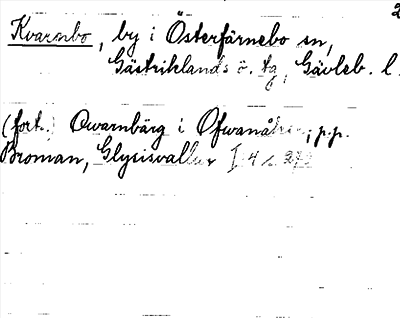 2
Kvarnbo, by i Österfärnebo sn,
Gästriklands ö. tg, Gävleb. l.
(fort.) Qwarnbärg i Ofwanåker, p.p.
Broman, Glysisvallur I: 4 s. 272